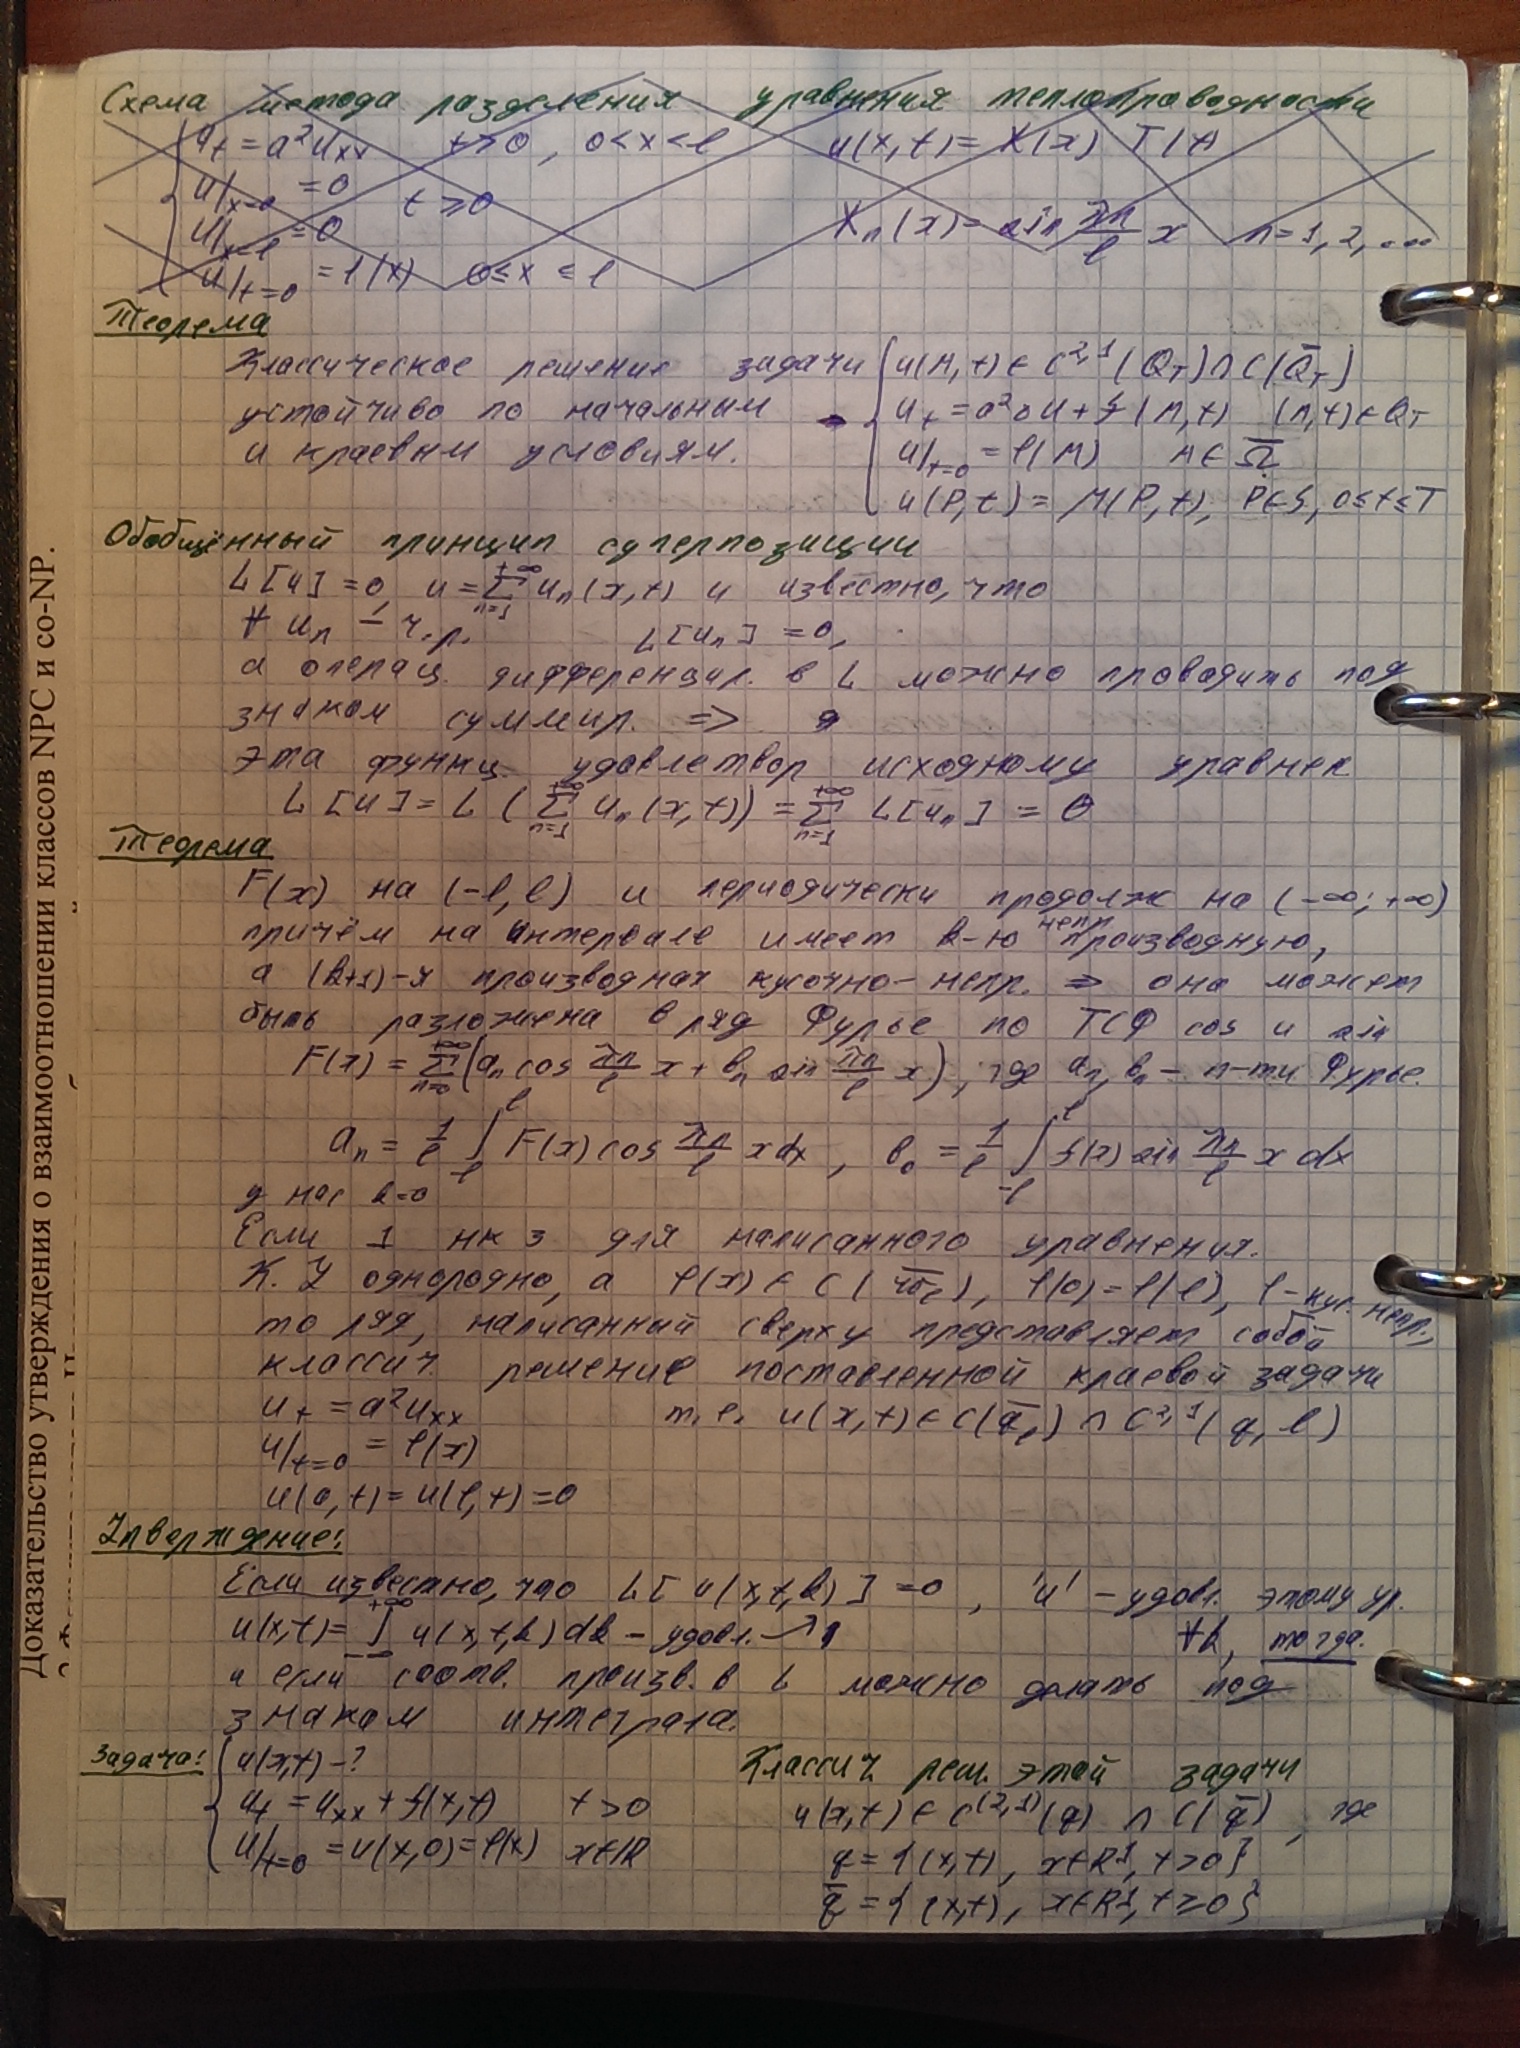 Схема метода разделения уравнения теплопроводности
u_t = a²u_xx t>0, 0<x<l u(x,t) = X(x) T(t)
u|_x=0 = 0
u|_x=l = 0 t ≥ 0 X_n(x) = sin πn/l x n=1,2,...
u|_t=0 = φ(x) 0≤x≤l
Теорема
Классическое решение задачи { u(M,t) ∈ C^2,1 (Q_T) ∩ C(Q̄_T)
устойчиво по начальным → u_t = a²Δu + f(M,t) (M,t)∈Q_T
и краевым условиям. u|_t=0 = φ(M) M ∈ Ω̄
u(P,t) = μ(P,t), P∈S, 0≤t≤T
Обобщённый принцип суперпозиции
L[u] = 0, u = Σ_{n=1}^{+∞} u_n(x,t) и известно, что
∀ u_n – ч.р. L[u_n] = 0,
а операц. дифференцир. в L можно проводить под
знаком суммир. =>
эта функц. удовлетвор исходному уравнен
L[u] = L(Σ_{n=1}^{+∞} u_n(x,t)) = Σ_{n=1}^{+∞} L[u_n] = 0
Теорема
F(x) на (-l, l) и периодически продолж на (-∞; +∞)
причём на интервале имеет k-ю непр производную,
а (k+1)-я производная кусочно-непр. => она может
быть разложена в ряд Фурье по ТСФ cos и sin
F(x) = Σ_{n=0}^{+∞} (a_n cos πn/l x + b_n sin πn/l x), где a_n, b_n – п-ти Фурье.
a_n = 1/l ∫_{-l}^{l} F(x) cos πn/l x dx, b_0 = 1/l ∫_{-l}^{l} f(x) sin πn/l x dx
у нас k=0
Если 1 нкз для написанного уравнения.
К.У однородно, а φ(x) ∈ C( ), φ(0) = φ(l), φ – кус. непр.,
то ряд, написанный сверху представляет собой
классич. решение поставленной краевой задачи
u_t = a²u_xx т.е. u(x,t) ∈ C(q̄_l) ∩ C^2,1 (q, l)
u|_t=0 = φ(x)
u(0,t) = u(l,t) = 0
Утверждение!
Если известно, что L[u(x,t,k)] = 0, 'u' – удовл. этому ур.
u(x,t) = ∫_{-∞}^{+∞} u(x,t,k) dk – удовл. ∀k, тогда.
и если соотв. произв. в L можно делать под
знаком интеграла.
Задача! { u(x,t) – ? Классич. реш. этой задачи
u_t = u_xx + f(x,t) t>0 u(x,t) ∈ C^(2,1)(q) ∩ C(q̄), где
u|_t=0 = u(x,0) = φ(x) x∈R q = {(x,t), x∈R¹, t>0}
q̄ = {(x,t), x∈R¹, t≥0}
Доказательство утверждения о взаимоотношении классов NPC и co-NP.